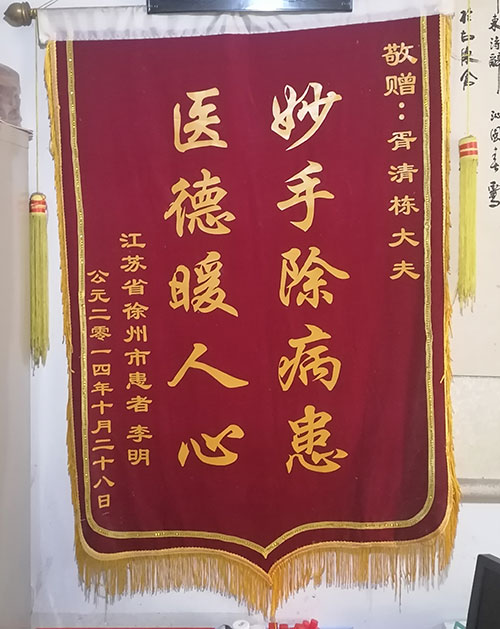 敬赠：胥清栋大夫
妙手除病患
医德暖人心
江苏省徐州市患者李明
公元二零一四年十月二十八日